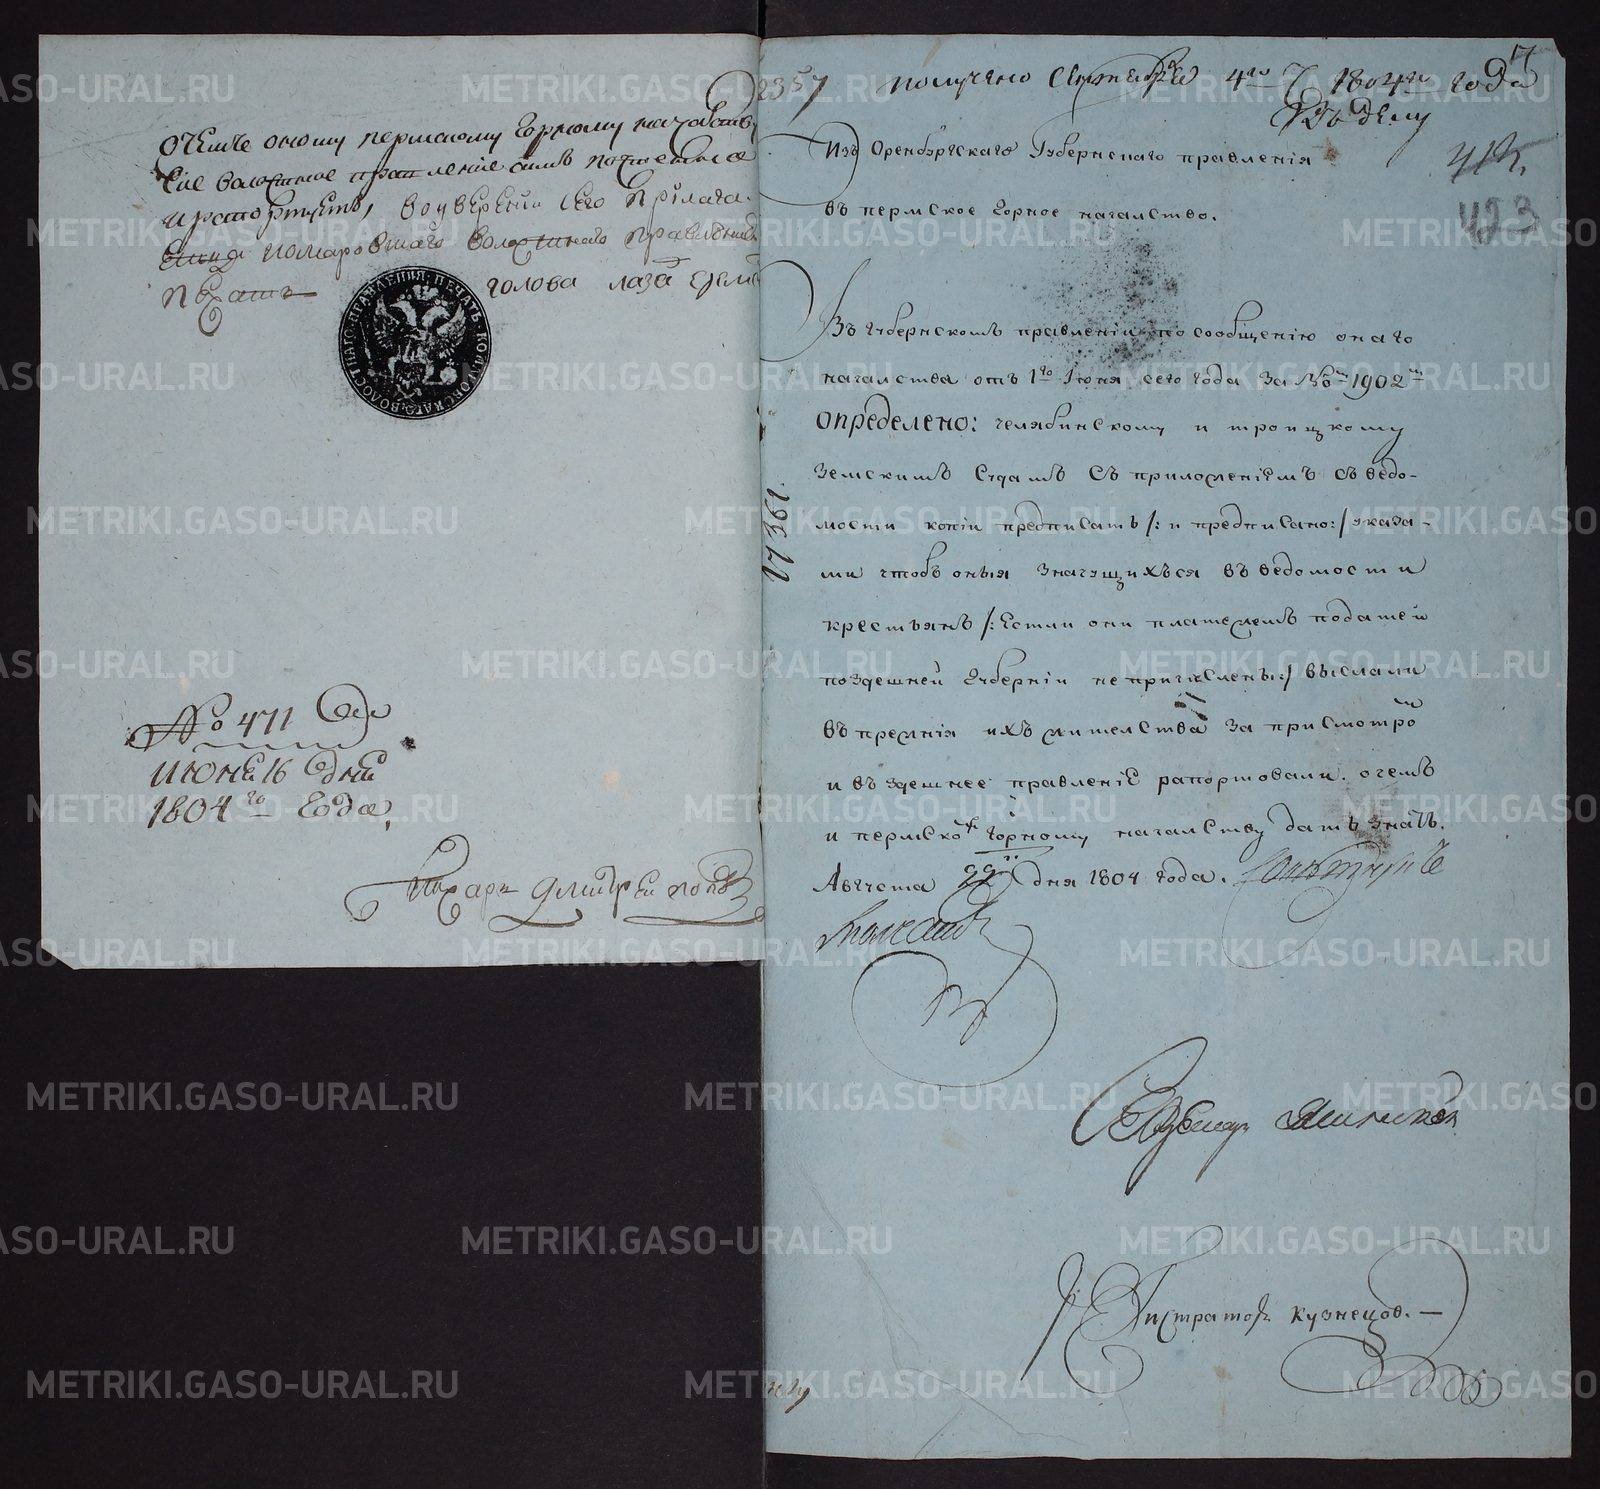 очемъ оному пермскому Горному начальству
сие волостное правление симъ почтеннѣйше
и рапортуетъ, во увѣрении сего прилага
комаровскаго волостнаго правления
печать
голова
ПЕЧАТЬ КОМАРОВСКАГО ВОЛОСТНАГО ПРАВЛЕНИЯ
№ 471
июня 16 дня
1804го года,
Писарь дмитрей поповъ
2357
17
получено сентября 4го 1804го года
Къ дѣлу
Изъ Оренбургскаго Губернскаго правления
въ пермское горное началство.
423
Въ губернскомъ правлении по сообщению онаго
началства отъ 1го Июня сего года за №м 1902м
определено: челябинскому и троицкому
земскимъ судамъ съ приложениемъ съ ведо-
мости копии предписать /: и предписано:/ указа-
ми чтобъ оныя значущихъся въ ведомости
крестьянъ /: естли они платежемъ податей
поздешней губернии непричислены:/ выслали
въ прежния ихъ жителства за присмотромъ
и въ здешнее правление рапортовали. о чемъ
и пермскому горному началству дать знать.
Августа 22 дня 1804 года.
17361
Секретарь
Регистраторъ Кузнецов.
METRIKI.GASO-URAL.RU